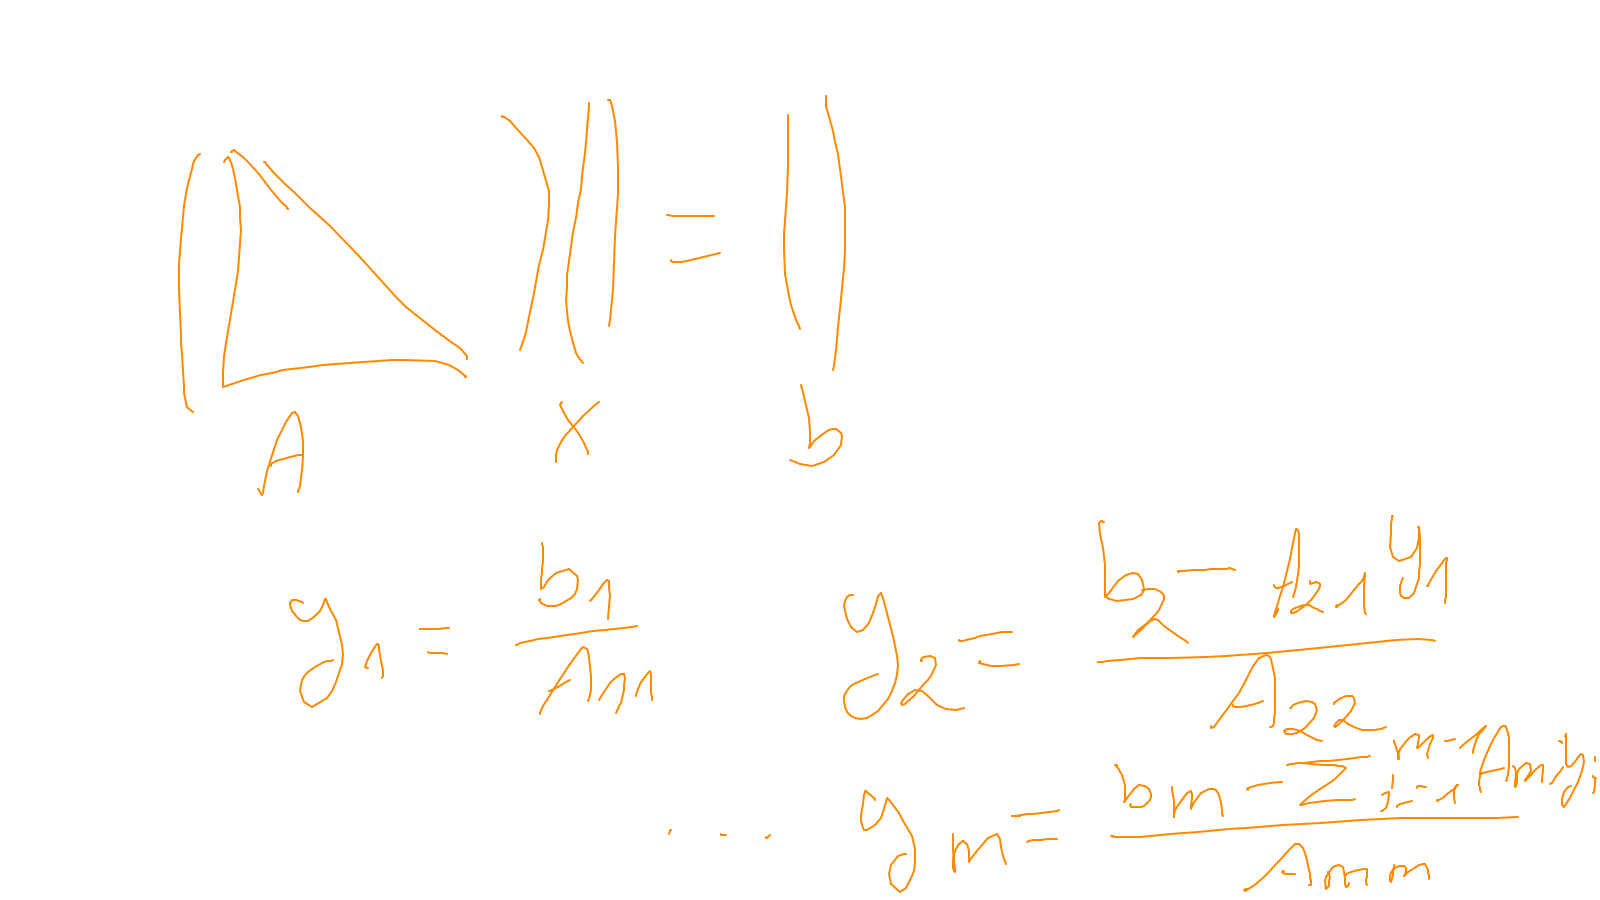 ( ) ( ) = ( )
A x b
y₁ = b₁ / A₁₁ y₂ = (b₂ - A₂₁ y₁) / A₂₂
... yₘ = (bₘ - Σᵢ₌₁ᵐ⁻¹ Aₘᵢ yᵢ) / Aₘₘ